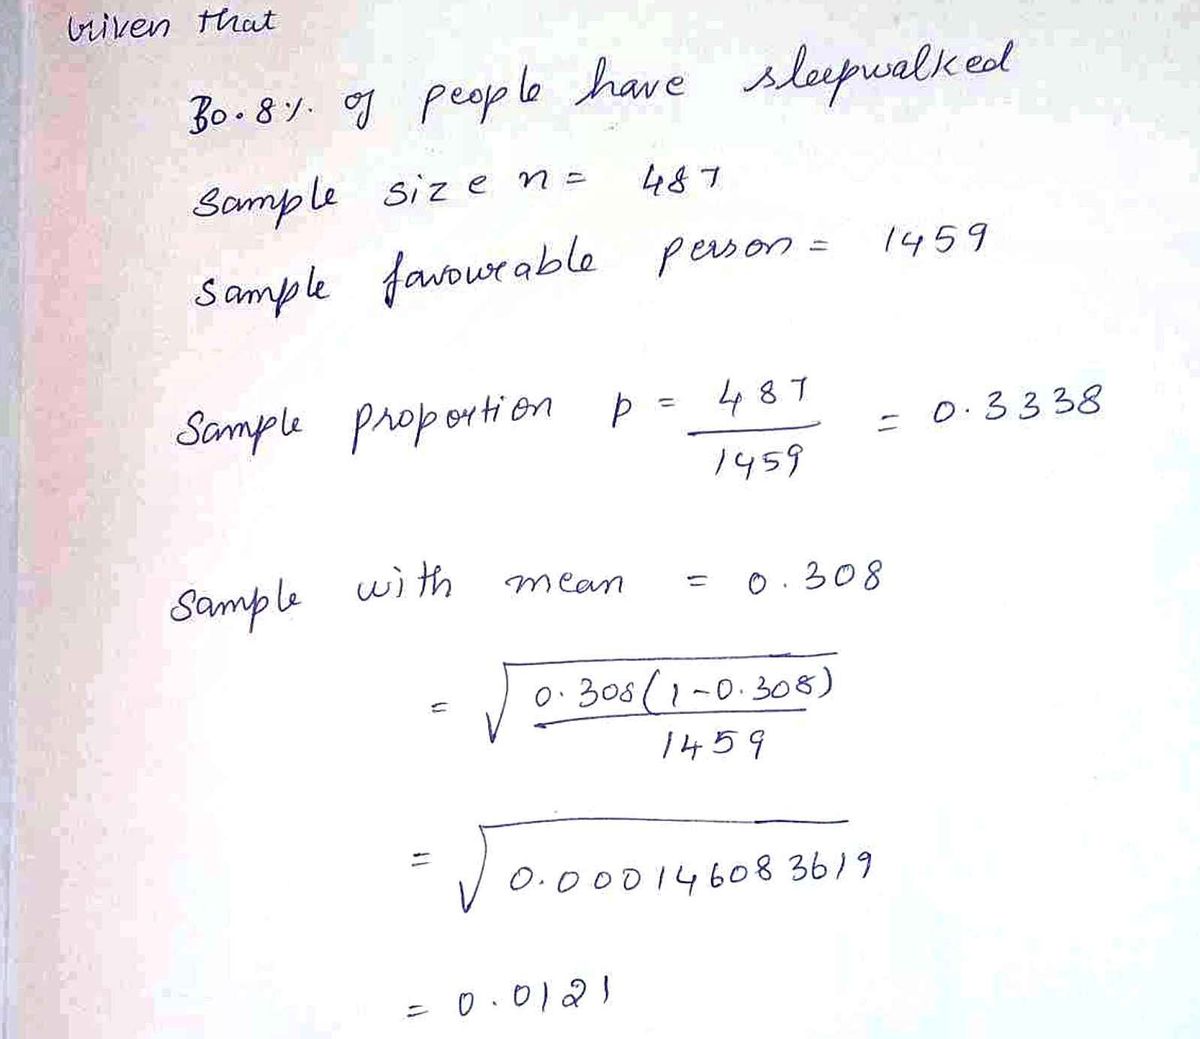 Given that
30.8%. of people have sleepwalked
Sample size n = 487
Sample favoureable person = 1459
Sample proportion p = 487/1459 = 0.3338
Sample with mean = 0.308
= √(0.308(1-0.308)/1459)
= √0.000146083619
= 0.0121